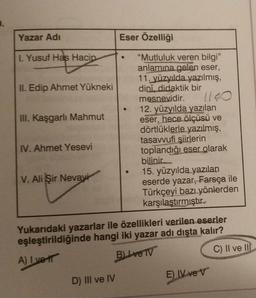 Yazar Adı
Eser Özelliği
I. Yusuf Has Hacip
II. Edip Ahmet Yükneki
III. Kaşgarlı Mahmut
IV. Ahmet Yesevi
V. Ali Şir Nevayi
• "Mutluluk veren bilgi"
anlamına gelen eser,
11. yüzyılda yazılmış,
dinî, didaktik bir
mesnevidir.
• 12. yüzyılda yazılan
eser, hece ölçüsü ve
dörtlüklerle yazılmış,
tasavvufi şiirlerin
toplandığı eser olarak
bilinir.
• 15. yüzyılda yazılan
eserde yazar, Farsça ile
Türkçeyi bazı yönlerden
karşılaştırmıştır.
Yukarıdaki yazarlar ile özellikleri verilen eserler
eşleştirildiğinde hangi iki yazar adı dışta kalır?
A) I ve II
B) I ve IV
C) II ve III
D) III ve IV
E) IV ve V